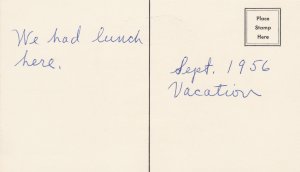 We had lunch
here.
Place
Stamp
Here
Sept. 1956
Vacation